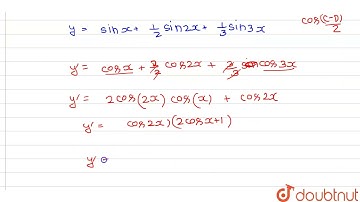 y = sinx + 1/2 sin2x + 1/3 sin3x
cos (C-D)/2
y' = cosx + 2/2 cos2x + 3/3 cos3x
y' = 2cos(2x) cos(x) + cos2x
y' = cos2x)(2cosx+1)
y'
doubtnut